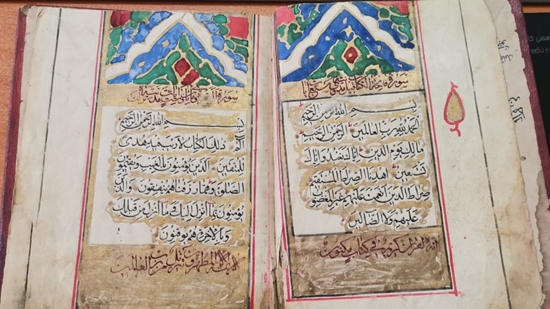 سورة فاتحة الكتاب
بسم الله الرحمن الرحيم
الحمد لله رب العالمين الرحمن الرحيم
مالك يوم الدين اياك نعبد واياك
نستعين اهدنا الصراط المستقيم
صراط الذين انعمت عليهم غير المغضوب
عليهم ولا الضالين
انه لقران كريم في كتاب مكنون
سورة
بسم الله الرحمن الرحيم
ذلك الكتاب لا ريب فيه هدى
للمتقين الذين يؤمنون بالغيب ويقيمون
الصلوة ومما رزقناهم ينفقون والذين
يؤمنون بما انزل اليك وما انزل من قبلك
وبالاخرة هم يوقنون
لا يمسه الا المطهرون تنزيل من رب العالمين